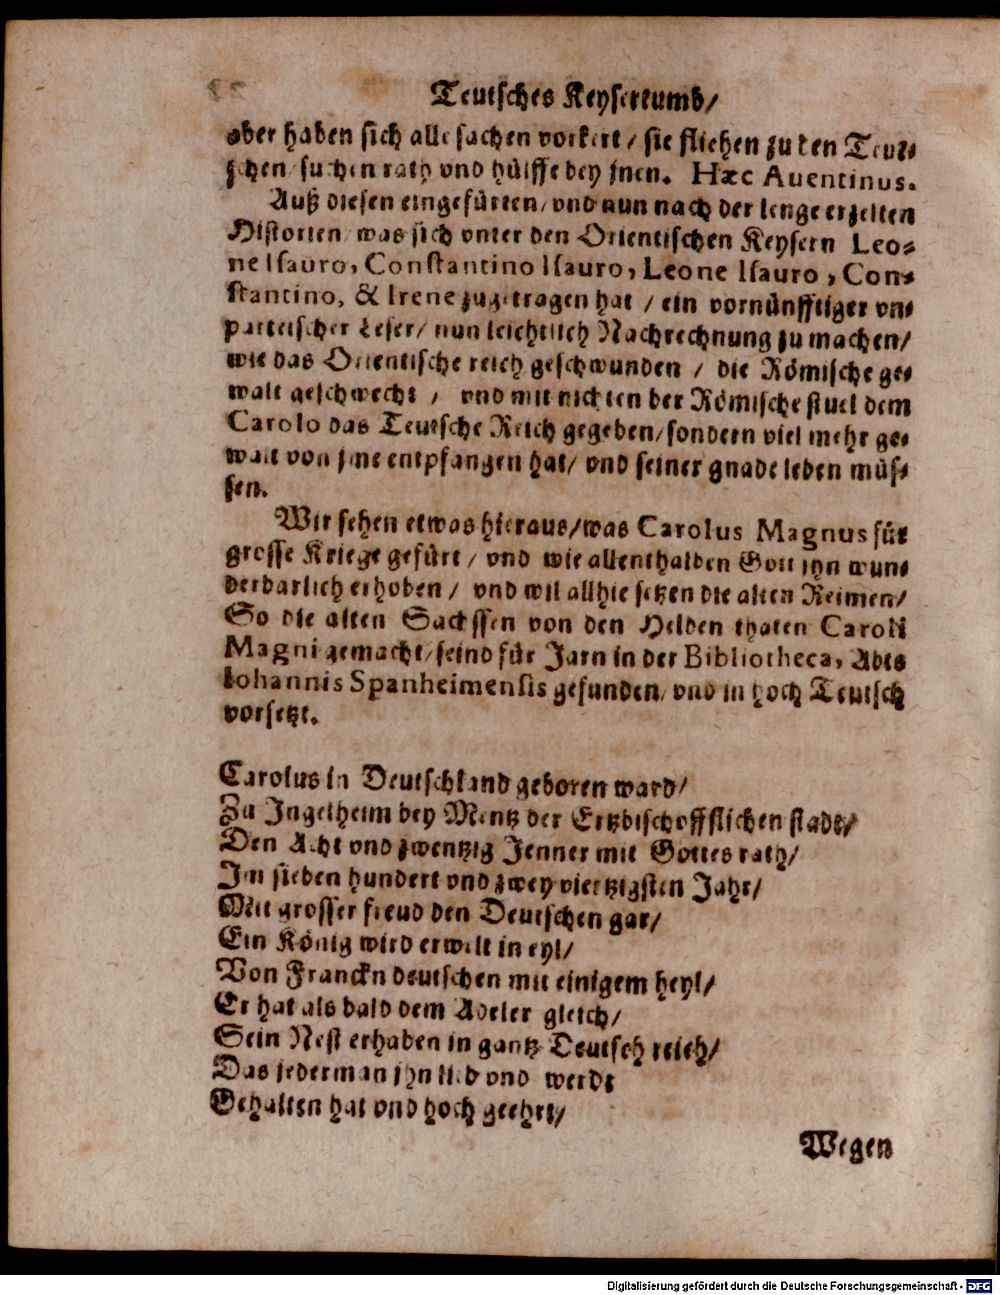 Teutsches Keysertumb/
aber haben sich alle sachen vorkert/ sie fliehen zu den Teut⸗
schen/ suchen rath vnd hülffe bey jnen. Hæc Auentinus.
Auß diesen eingefürten/ vnd nun nach der lenge erzelten
Historien/ was sich vnter den Orientischen Keysern Leo⸗
ne Isauro, Constantino Isauro, Leone Isauro, Con⸗
stantino, & Irene zugetragen hat / ein vornünfftiger vn⸗
parteischer Leser/ nun leichtlich Nachrechnung zu machen/
wie das Orientische reich geschwunden / die Römische ge⸗
walt geschwecht / vnd mit nichten der Römische stuel dem
Carolo das Teutsche Reich gegeben/ sondern viel mehr ge⸗
walt von jme entpfangen hat/ vnd seiner gnade leben müs⸗
sen.
Wir sehen etwas hieraus/ was Carolus Magnus für
grosse Kriege gefürt / vnd wie allenthalben Gott jhn wun⸗
derbarlich erhoben / vnd wil allhie setzen die alten Reimen/
So die alten Sachssen von den Helden thaten Caroli
Magni gemacht/ seind für Jarn in der Bibliotheca, Abts
Iohannis Spanheimensis gefunden/ vnd in hoch Teutsch
vorsetzt.
Carolus in Deutschland geboren ward/
Zu Ingelheim bey Mentz der Ertzbischoffflichen stadt/
Den Acht vnd zwentzig Jenner mit Gottes rath/
Im sieben hundert vnd zwey viertzigsten Jahr/
Mit grosser freud den Deutschen gar/
Ein König wird erwelt in eyl/
Von Franckn deutschen mit einigem heyl/
Er hat als bald dem Adeler gleich/
Sein Nest erhaben in gantz Deutsch reich/
Das jederman jhn lieb vnd werdt
Gehalten hat vnd hoch geehrt/
Wegen
Digitalisierung gefördert durch die Deutsche Forschungsgemeinschaft - DFG